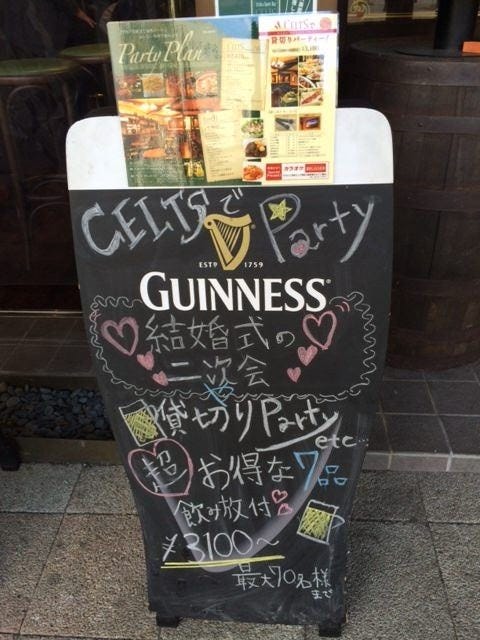 Party Plan
CELTSで
貸切りパーティー!
カラオケ
CELTSで Party
ESTD 1759
GUINNESS
結婚式の
二次会
や
貸切りParty
etc...
超お得な7品
飲み放付
¥3100～
最大70名様
まで